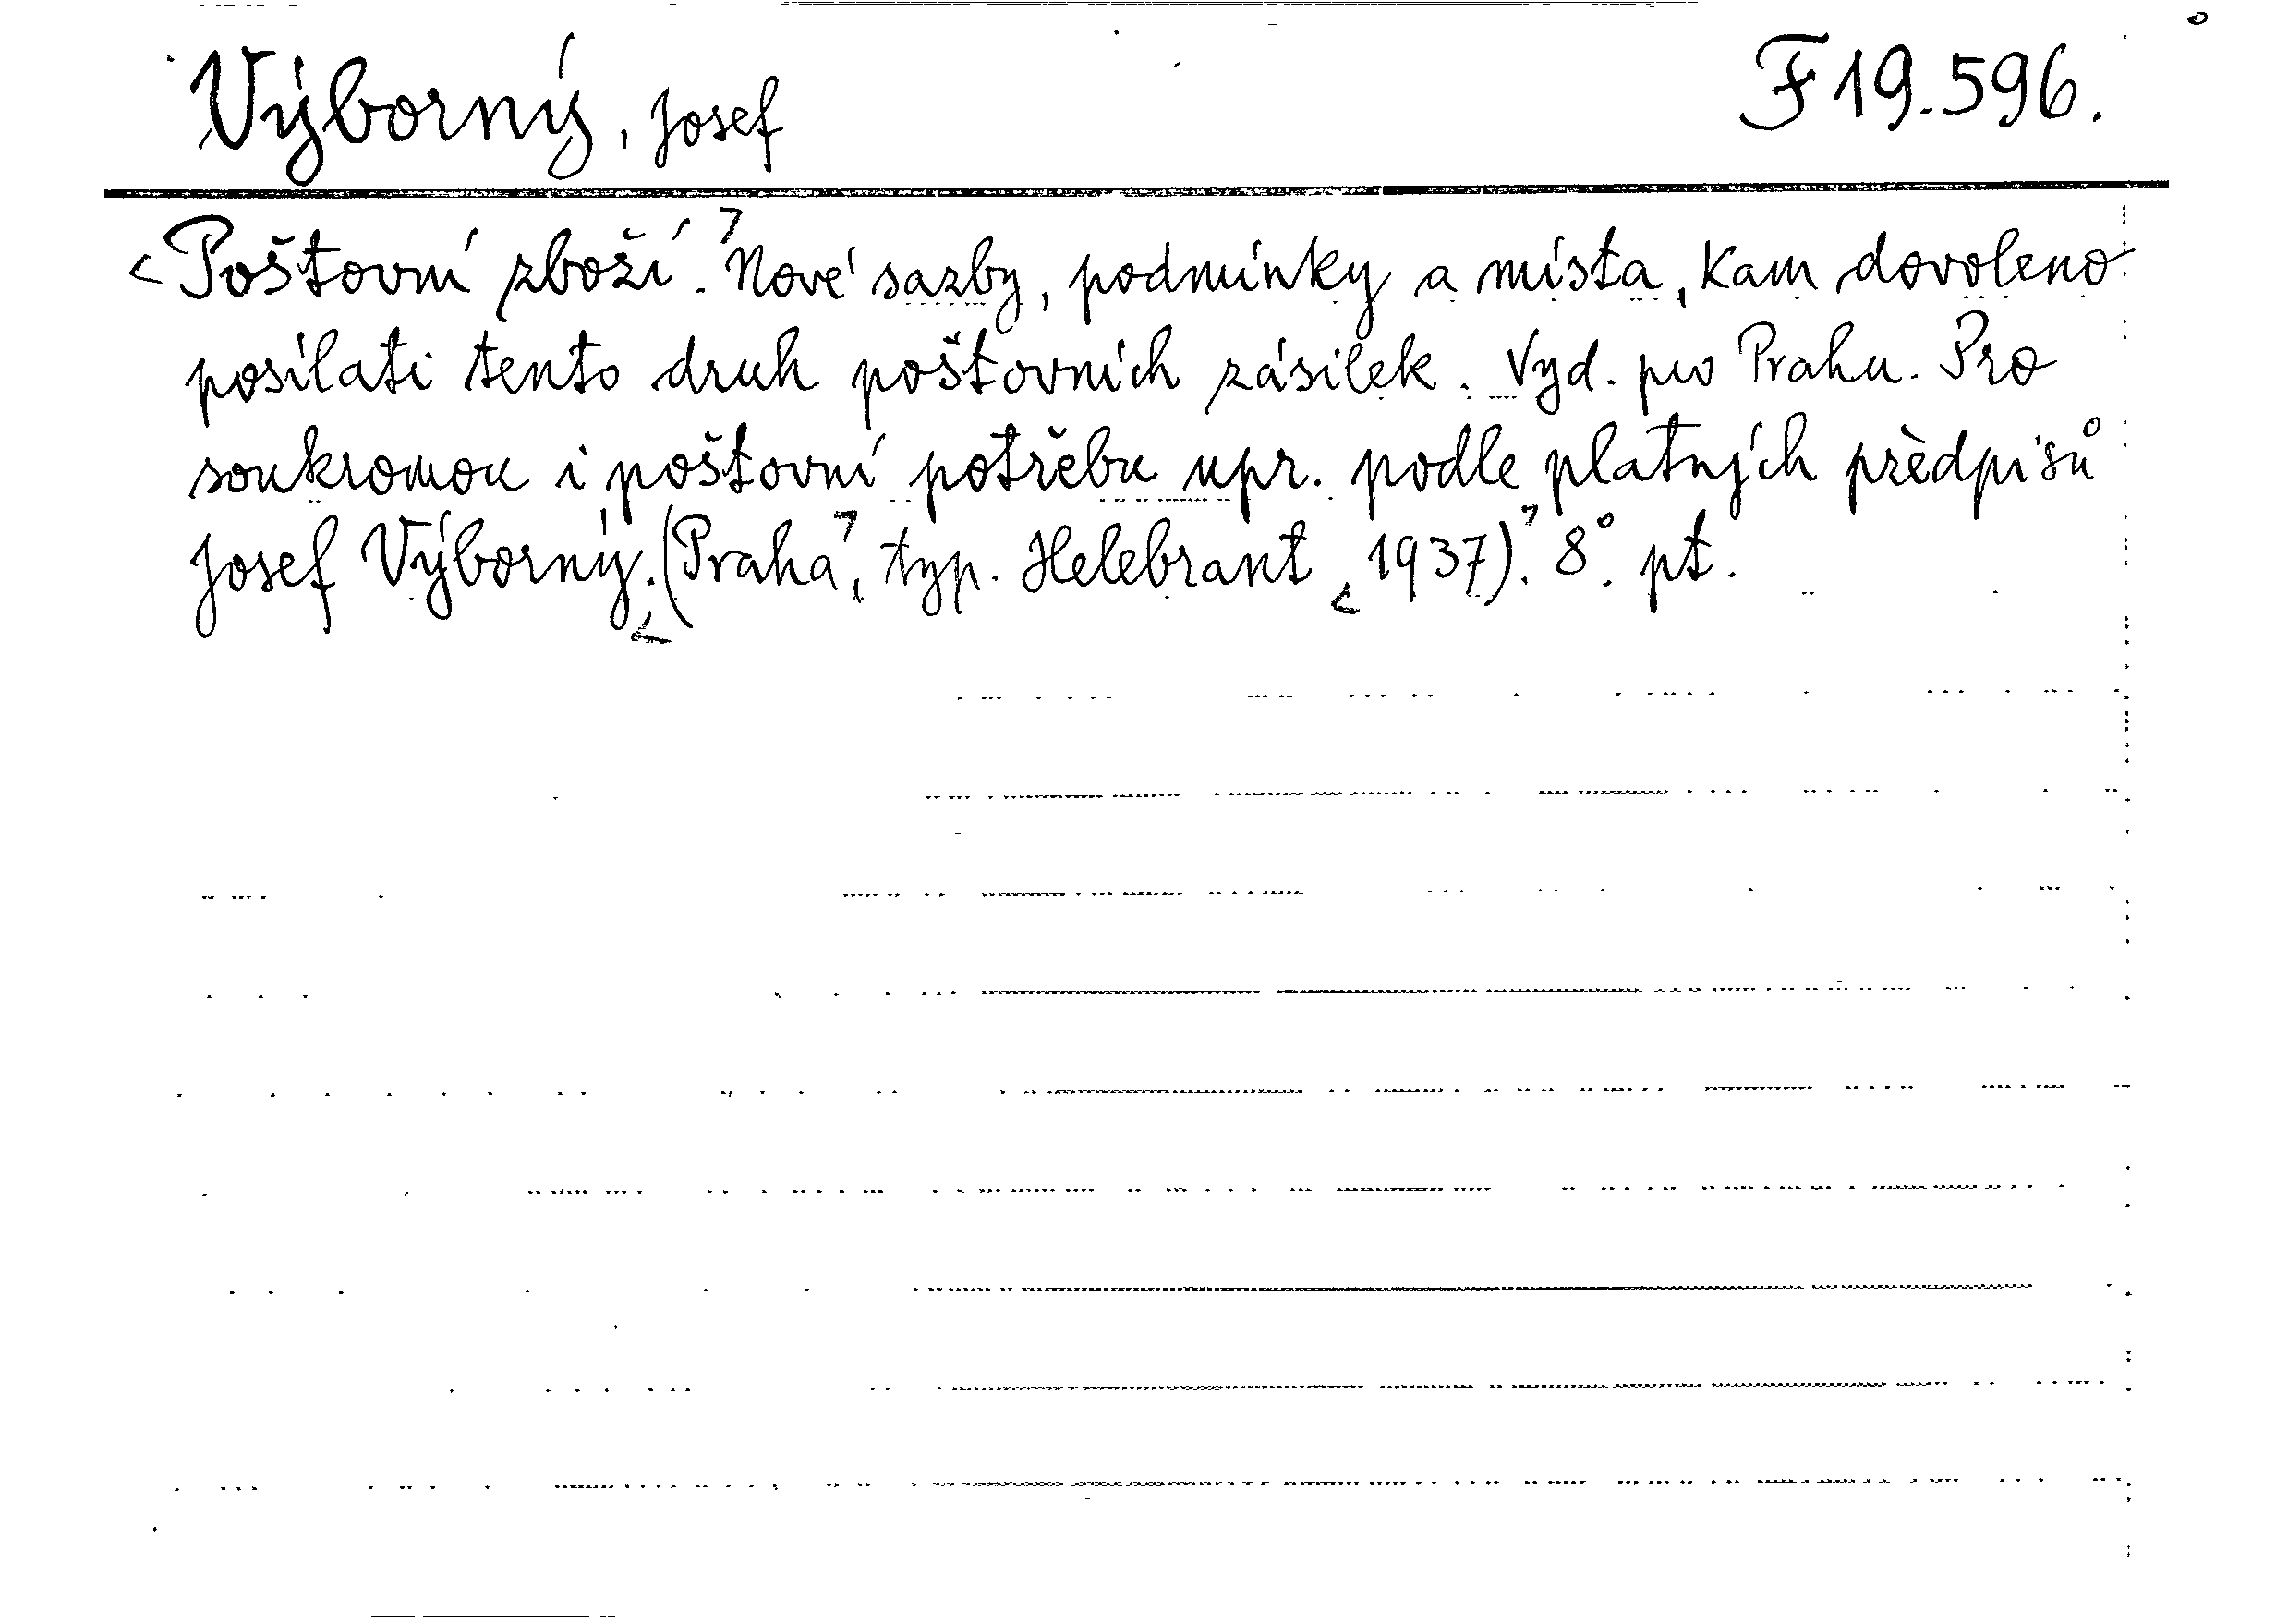 Výborný, Josef F 19.596.
Poštovní zboží. Nové sazby, podmínky a místa, kam dovoleno
posílati tento druh poštovních zásilek. Vyd. pro Prahu. Pro
soukromou i poštovní potřebu upr. podle platných předpisů
Josef Výborný. (Praha, typ. Helebrant, 1937). 8°. pt.